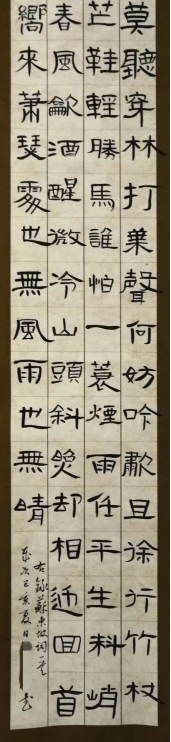 莫聽穿林打葉聲何妨吟歗且徐行竹杖
芒鞋輕勝馬誰怕一蓑煙雨任平生料峭
春風龡酒醒微冷山頭斜照却相迎回首
嚮來蕭瑟處也無風雨也無晴
右錄蘇東坡詞一首
歲次己亥夏日